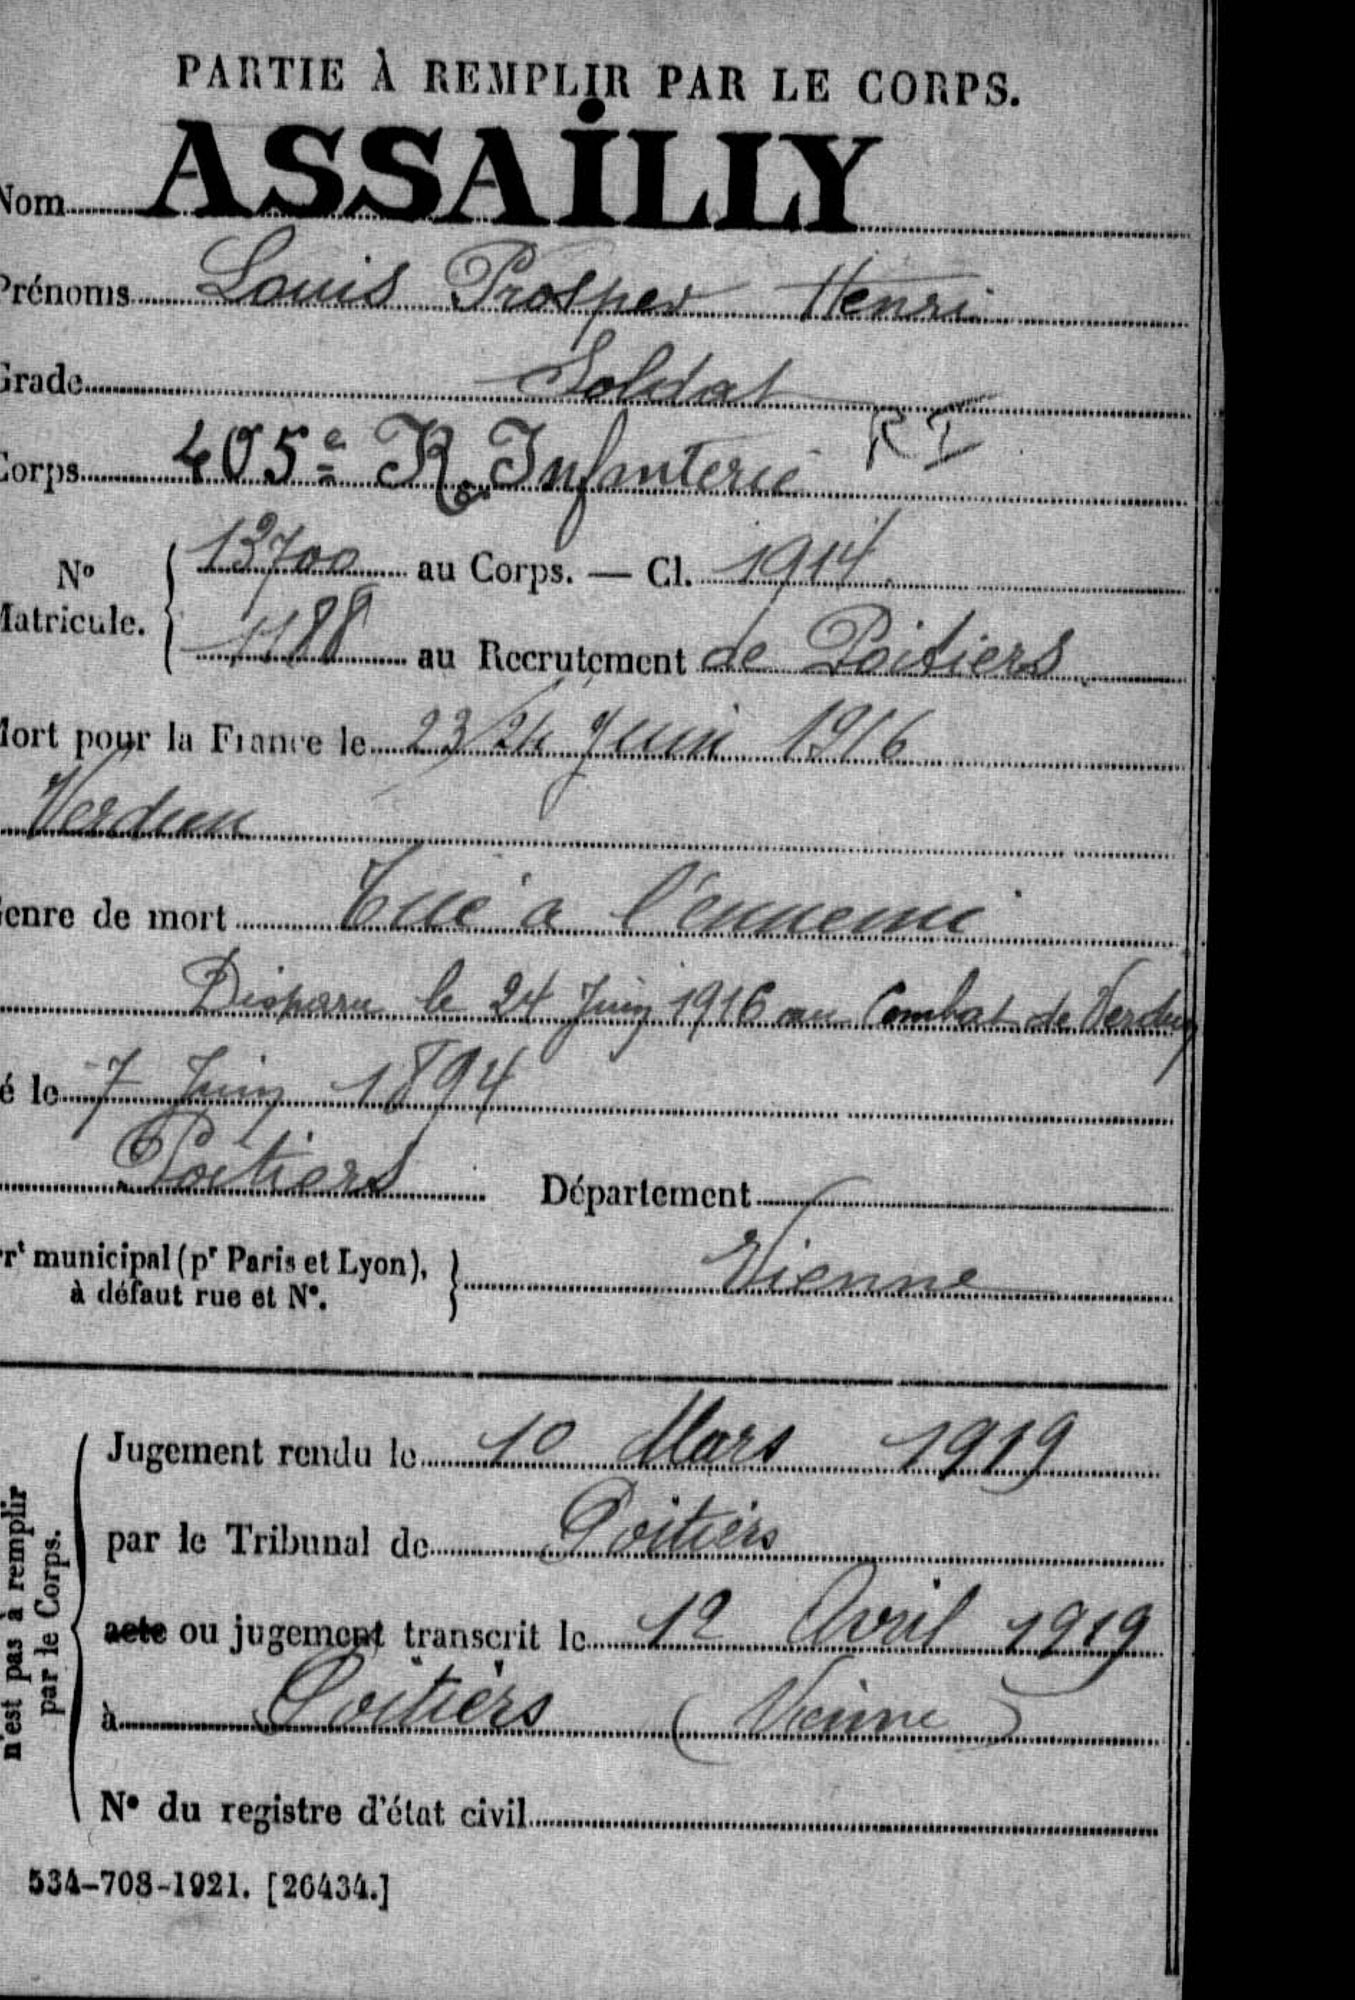 PARTIE À REMPLIR PAR LE CORPS.
Nom ASSAILLY
Prénoms Louis Prosper Henri
Grade Soldat
Corps 405e R. Infanterie R I
No Matricule. { 13700 au Corps. — Cl. 1914.
1188 au Recrutement de Poitiers
Mort pour la France le 23/24 Juin 1916
Verdun
Genre de mort Tué à l'ennemi
Disparu le 24 Juin 1916 au Combat de Verdun
é le 7 Juin 1894
Poitiers Département
rrt municipal (pr Paris et Lyon), à défaut rue et No. } Vienne
n'est pas à remplir par le Corps.
Jugement rendu le 10 Mars 1919
par le Tribunal de Poitiers
acte ou jugement transcrit le 12 Avril 1919
à Poitiers (Vienne)
No du registre d'état civil
534-708-1921. [26434.]